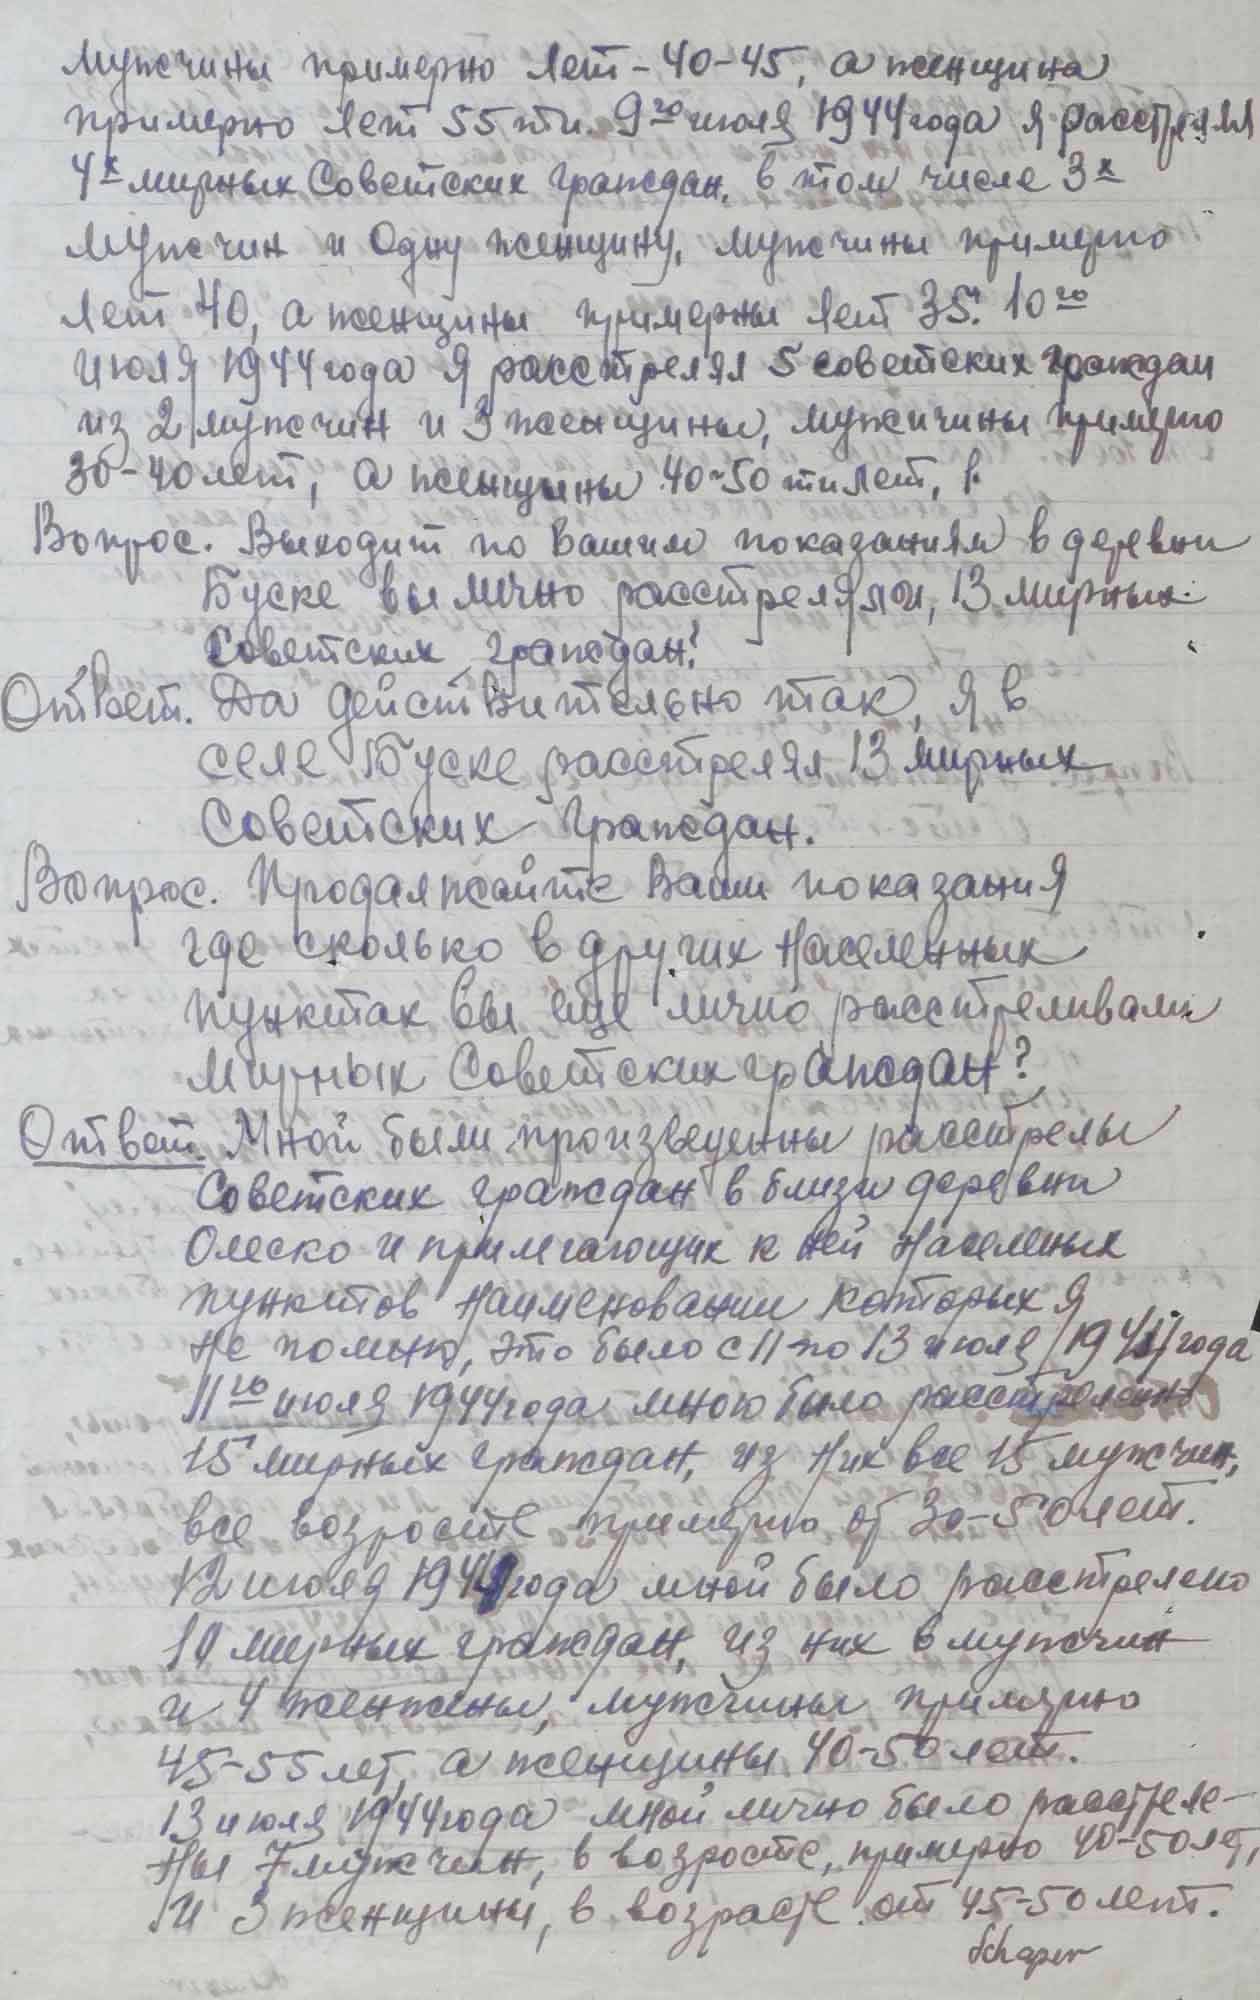 Мужчины примерно лет - 40-45, а женщина
примерно лет 55ти. 9го июля 1944 года я расстрелял
4х мирных Советских граждан, в том числе 3х
мужчин и одну женщину, мужчины примерно
лет 40, а женщины примерны лет 35. 10го
июля 1944 года я расстрелял 5 советских граждан
из 2 мужчин и 3 женщины, мужчины примерно
30-40 лет, а женщины 40-50 ти лет, в
Вопрос. Выходит по Вашим показаниям в деревни
Буске вы лично расстреляли, 13 мирных
Советских граждан?
Ответ. Да действительно так, я в
селе Буске расстрелял 13 мирных
Советских граждан.
Вопрос. Продалжайте Ваши показания
где сколько в других населенных
пунктах вы еще лично расстреливали
мирных Советских граждан?
Ответ. Мной были произведенны расстрелы
Советских граждан в близи деревни
Олеско и прилегающих к ней населеных
пунктов наименовании которых я
не помню, это было с 11 по 13 июля 1944 года
11го июля 1944 года мною было расстреленно
15 мирных граждан, из них все 15 мужчин,
все возрасте примерно от 30-50 лет.
12 июля 1944 года мной было расстрелено
10 мирных граждан, из них 6 мужчин
и 4 женжены, мужчины примерно
45-55 лет, а женщины 40-50 лет.
13 июля 1944 года мной лично было расстреле-
ны 7 мужчин, в возрасте, примерно 40-50 лет,
и 3 женщины, в возрасте от 45-50 лет.
Schaper